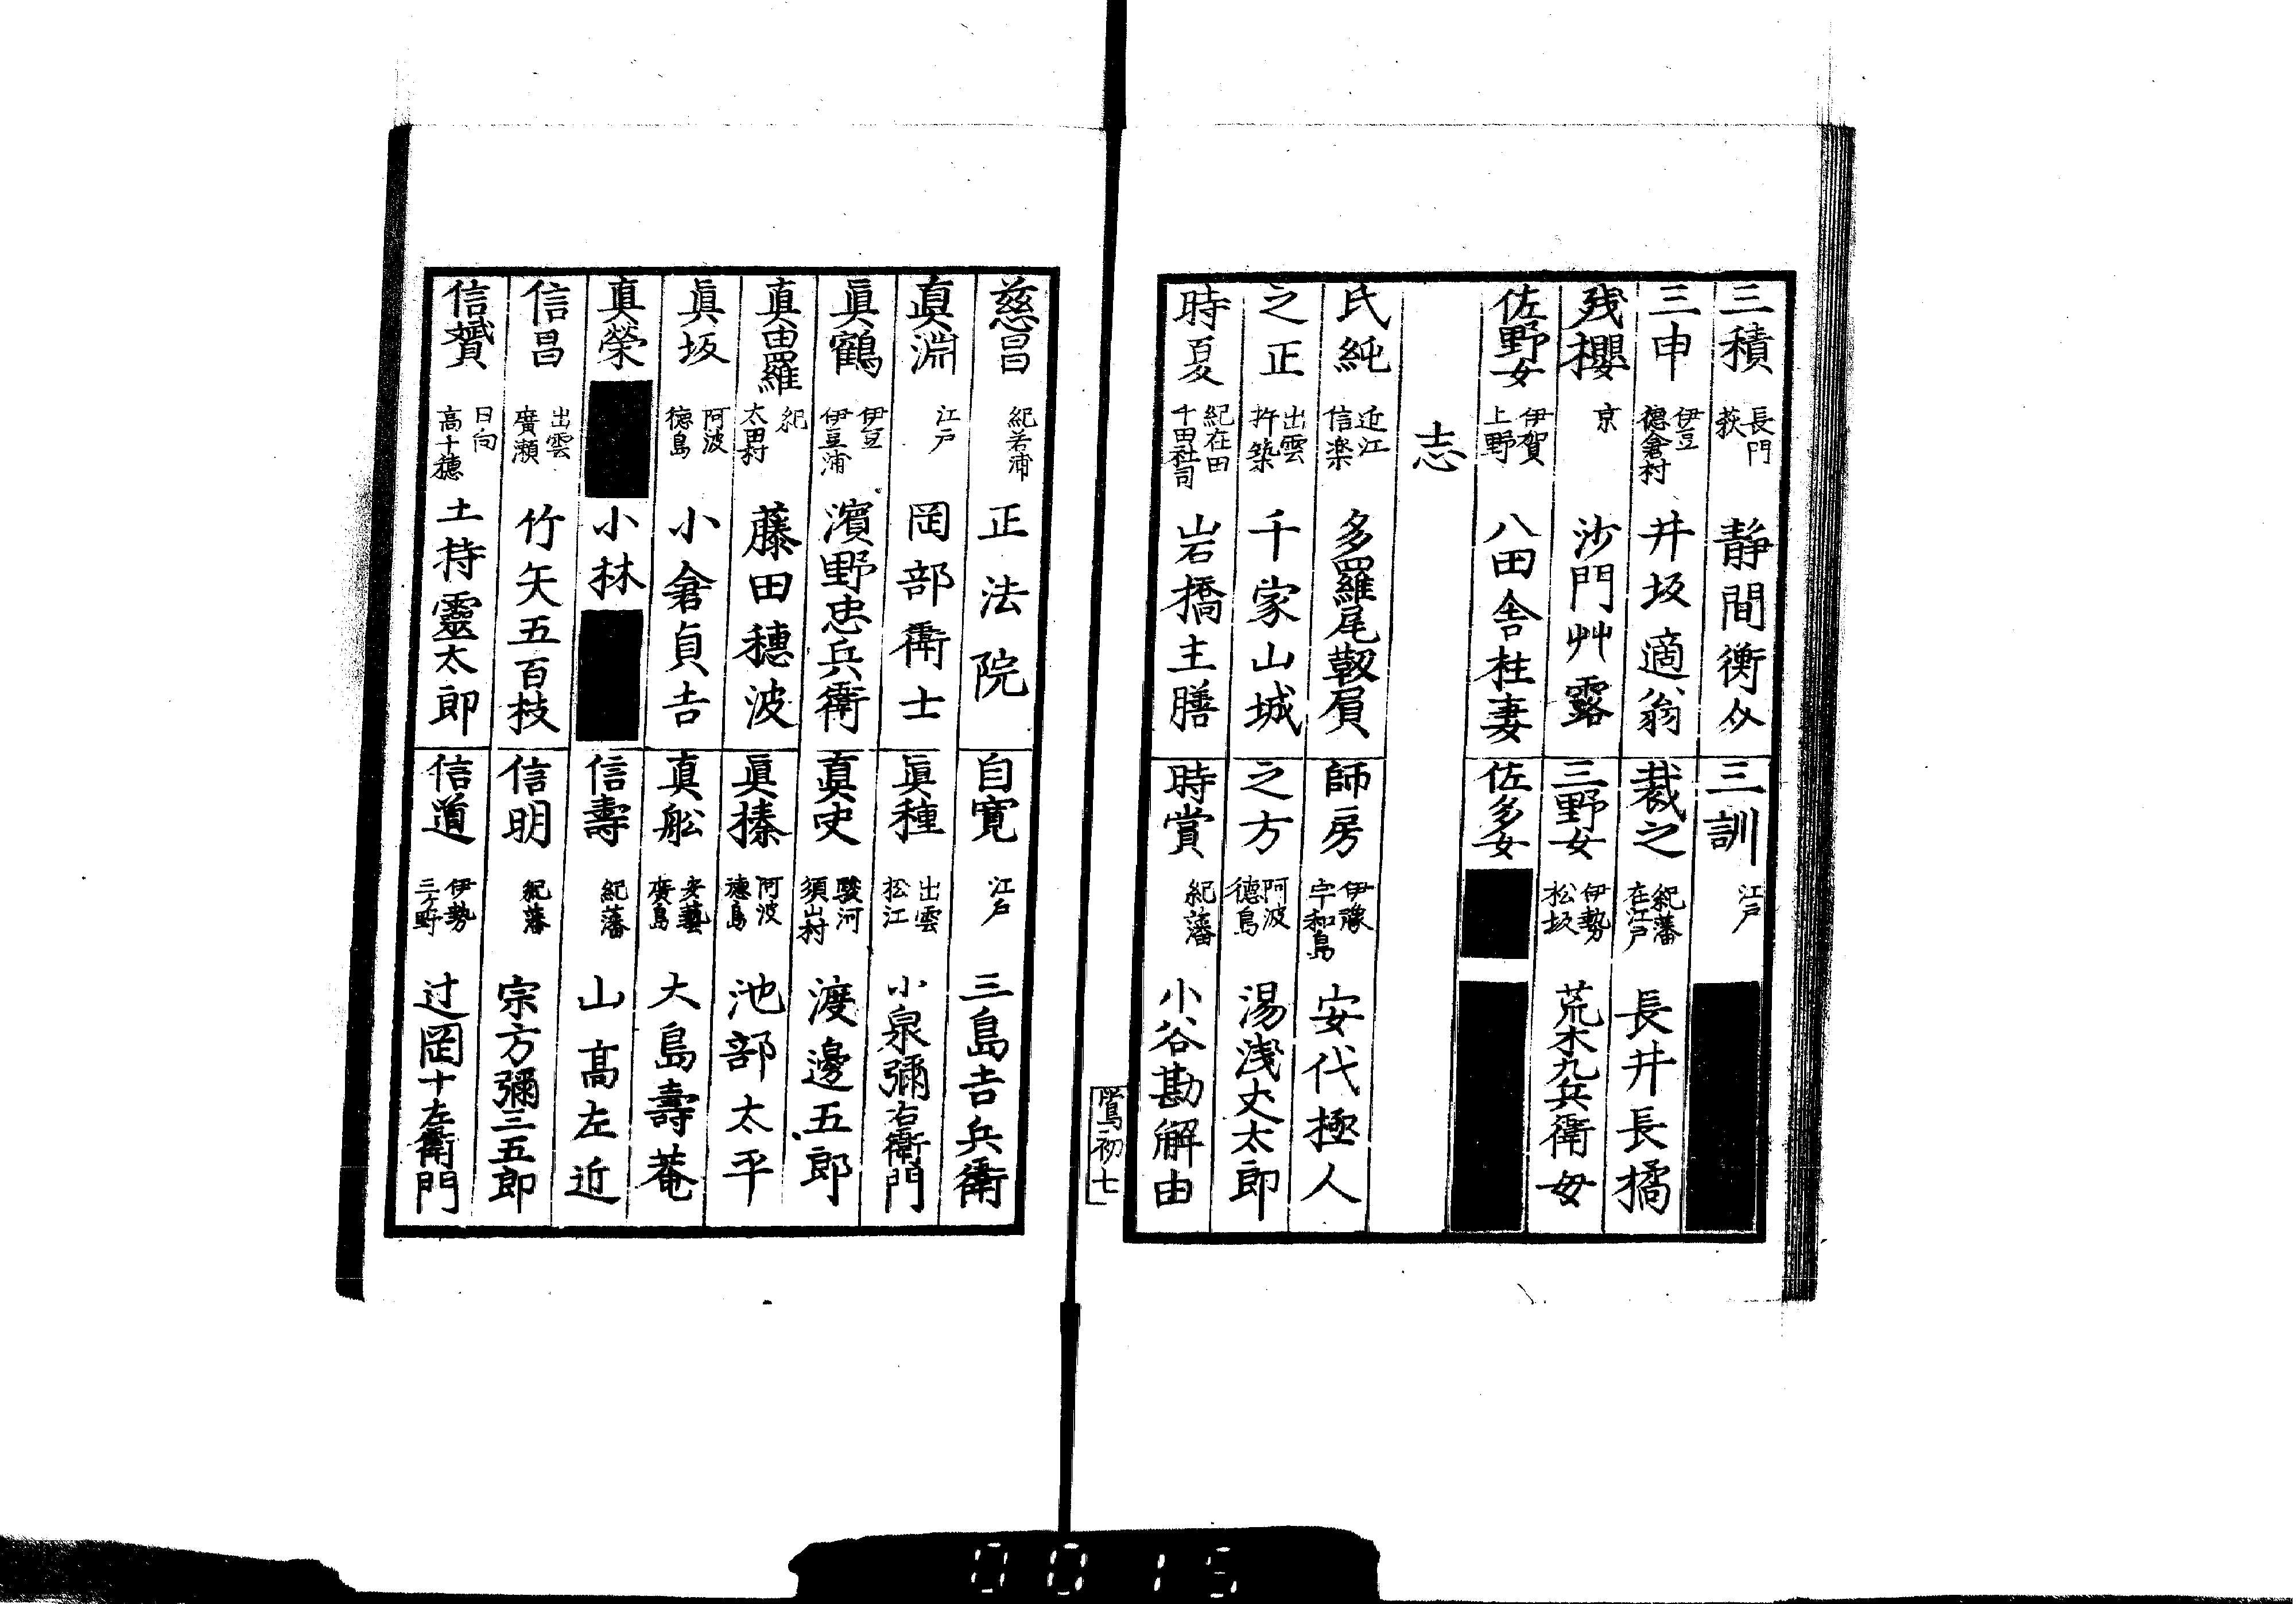 三積 長門萩 靜間衡夂
三訓 江戸
三申 伊豆德倉村 井坂適翁
裁之 紀藩在江戸 長井長橘
残櫻 京 沙門艸露
三野女 伊勢松坂 荒木九兵衛女
佐野女 伊賀上野 八田舎柱妻
佐多女
志
氏純 近江信楽 多羅尾靫屓
師房 伊豫宇和島 安代極人
之正 出雲杵築 千家山城
之方 阿波德島 湯浅丈太郎
時夏 紀在田千田社司 岩橋主膳
時賞 紀藩 小谷勘解由
鴬初 七
慈昌 紀若浦 正法院
自寛 江戸 三島吉兵衛
眞淵 江戸 岡部衛士
眞種 出雲松江 小泉彌右衛門
眞鶴 伊豆伊豆浦 濱野忠兵衛
眞史 駿河須山村 渡邊五郎
真由羅 紀太田村 藤田穗波
眞榛 阿波德島 池部太平
眞坂 阿波德島 小倉貞吉
真舩 安藝廣島 大島壽菴
真榮 小林
信壽 紀藩 山高左近
信昌 出雲廣瀬 竹矢五百枝
信明 紀藩 宗方彌三五郎
信贇 日向高千穗 土持靈太郎
信道 伊勢三ケ野 辻岡十左衛門
0015